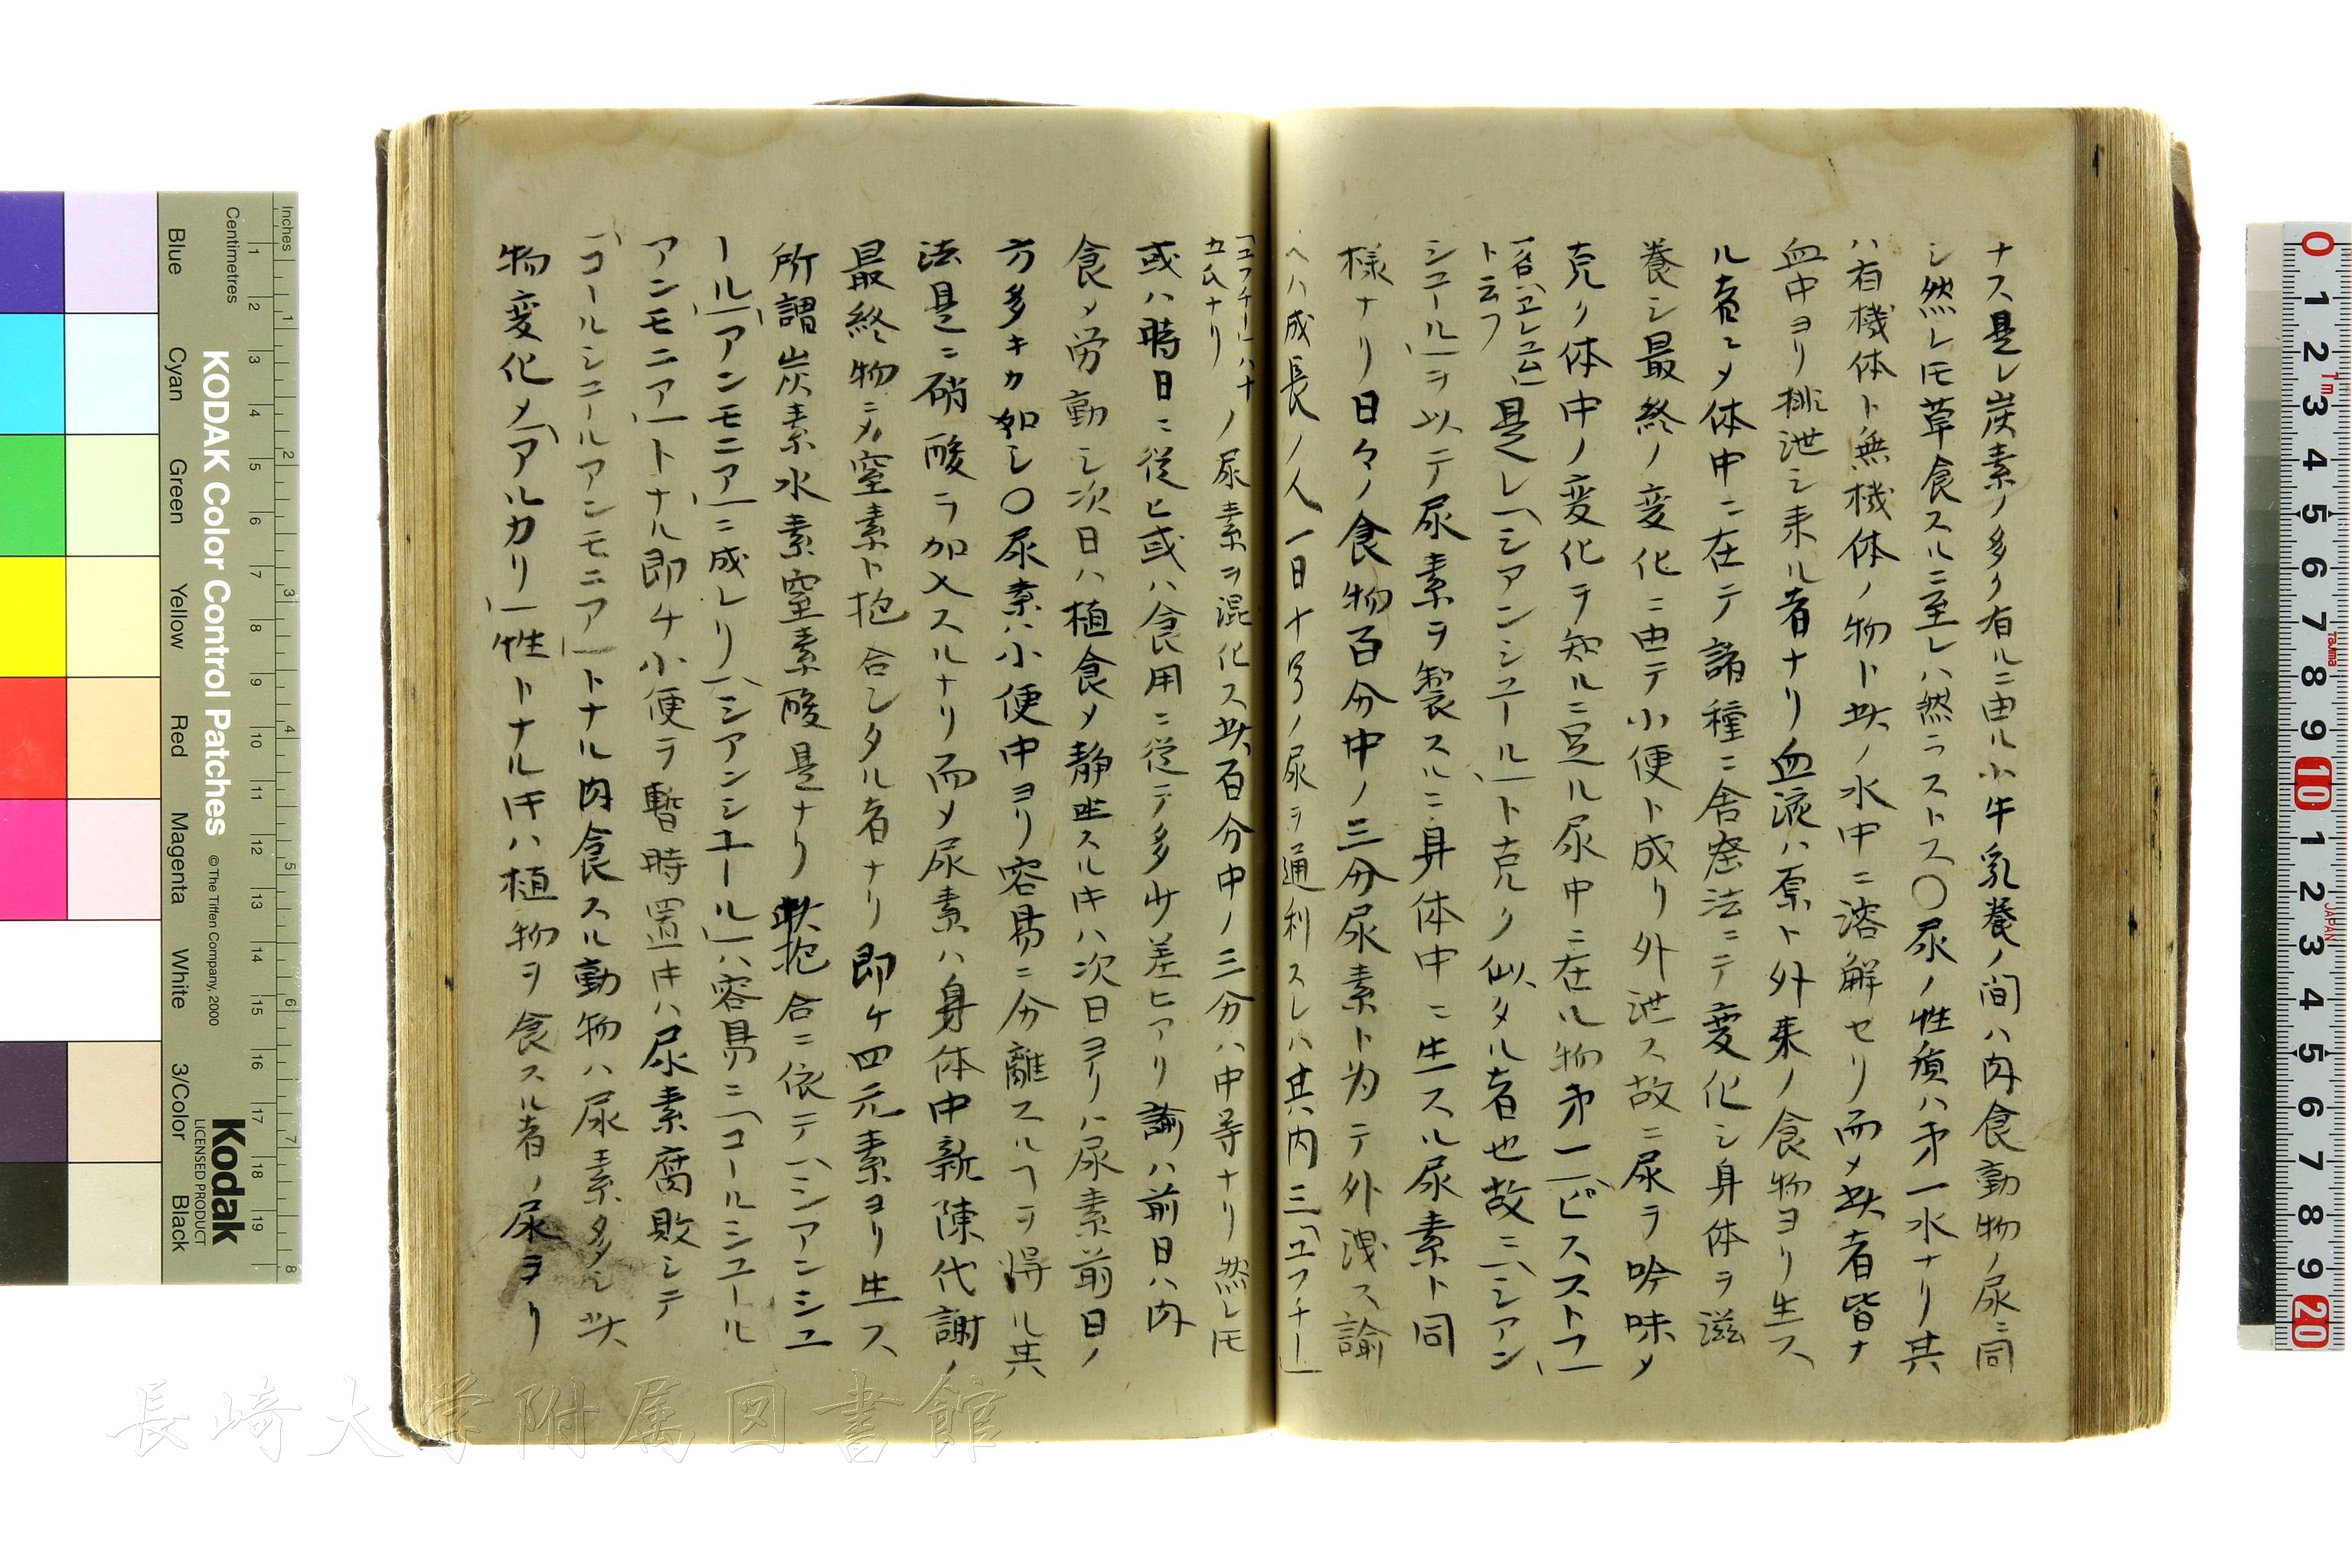 ナス是レ炭素ノ多ク有ルニ由ル小牛乳養ノ間ハ肉食動物ノ尿ニ同
シ然レ𪜈草食スルニ至レハ然ラストス〇尿ノ性質ハ第一水ナリ其
ハ有機体ト無機体ノ物ト此ノ水中ニ溶解セリ而メ此者皆ナ
血中ヨリ排泄シ来ル者ナリ血液ハ原ト外来ノ食物ヨリ生ス
ル者ニメ体中ニ在テ諸種ニ舎密法ニテ変化シ身体ヲ滋
養シ最終ノ変化ニ由テ小便ト成リ外泄ス故ニ尿ヲ吟味メ
克ク体中ノ変化ヲ知ルニ足ル尿中ニ在ル物第一「ピスストフ」
一名ハ「ユレユム」ト云フ 是レ「シアンシユール」ト克ク似タル者也故ニ「シアン
シユール」ヲ以テ尿素ヲ製スルニ身体中ニ生スル尿素ト同
様ナリ日々ノ食物百分中ノ三分尿素ト為テ外洩ス諭
ヘハ成長ノ人一日十ノ尿ヲ通利スレハ其内三「ヱフナー」
「ヱフナー」ハ十五氏ナリ ノ尿素ヲ混化ス此百分中ノ三分ハ中等ナリ然レ𪜈
或ハ時日ニ従ヒ或ハ食用ニ従テ多少差ヒアリ諭ハ前日ハ肉
食メ労動シ次日ハ植食メ静坐スル片ハ次日ヨリハ尿素前日ノ
方多キカ如シ〇尿素ハ小便中ヨリ容易ニ分離スルヿヲ得ル其
法是ニ硝酸ヲ加入スルナリ而メ尿素ハ身体中新陳代謝ノ
最終物ニメ窒素ト抱合シタル者ナリ即ケ四元素ヨリ生ス
所謂炭素水素窒素酸是ナリ此抱合ニ依テ「シアンシユ
ール」「アンモニア」ニ成レリ「シアンシユール」ハ容易ニ「コールシユール
アンモニア」トナル即チ小便ヲ暫時置片ハ尿素腐敗シテ
「コールシユールアンモニア」トナル肉食スル動物ハ尿素多シ此
物変化メ「アルカリ」性トナル片ハ植物ヲ食スル者ノ尿ヨリ
Inches
Centimetres
KODAK Color Control Patches
© The Tiffen Company, 2000
Kodak
LICENSED PRODUCT
Blue
Cyan
Green
Yellow
Red
Magenta
White
3/Color
Black
長崎大学附属図書館